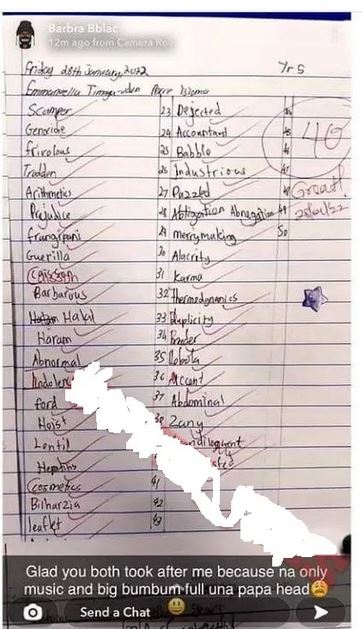 Barbra Bblac
12m ago from Camera Rol
Friday 28th January, 2022 Yr 5
Emmanuella
Scamper 23 Dejected
Genocide 24 Accountant
frivolous 25 Babble
Trodden 26 Industrious
Arithmetics 27 Puzzled
Prejudice 28 Abnegation
frangipani 29 merrymaking 50
Guerilla 30 Alacrity
31 Karma
Barbarous 32 Thermodynamics
Halal 33 Duplicity
Haram 34
Abnormal 35
Indolen 36 Accent
ford 37 Abdominal
Hoist 38 Zany
Lentil
Hepatitis
cosmetics 41
Bilharzia 42
leaflet 43
40
Great!
28/01/22
Glad you both took after me because na only
music and big bumbum full una papa head😩
Send a Chat